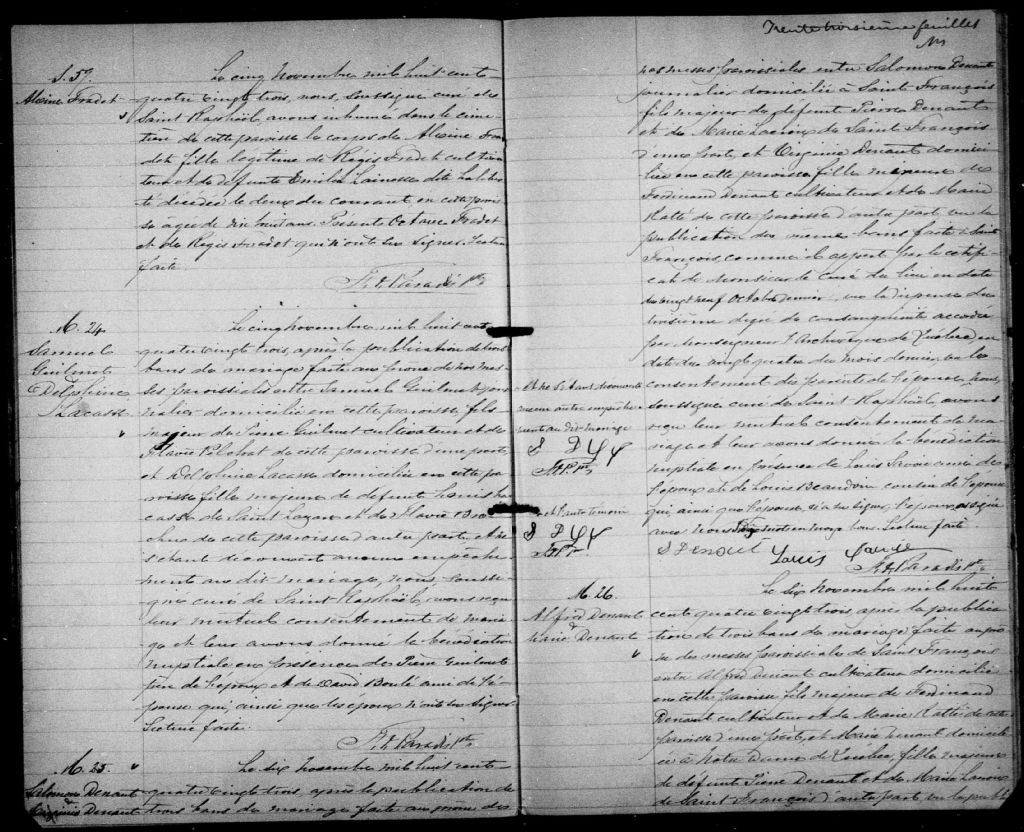 S. 59.
Alxine Fradet
Le cinq novembre mil huit cent
quatre vingt trois, nous, soussigné curé de
Saint Raphaël avons inhumé dans le cime-
tière de cette paroisse le corps de Alxine Fra
det fille légitime de Régis Fradet cultiva
teur et de défunte Emilie Lainesse dite Laliber
té décédée le deux du courant en cette parois
se agée de dix huit ans. Présents Octave Fradet
et de Régis Fradet qui n'ont su signer. Lecture
faite.
Paradis Ptre
M. 24
Samuel
Guilmet
&
Delphine
Lacasse
Le cinq novembre mil huit cent
quatre vingt trois, après la publication de trois
bans de mariage faite au prone de nos mes
ses paroissiales entre Samuel Guilmet jour
nalier domicilié en cette paroisse fils
majeur de Pierre Guilmet cultivateur et de
Flavie de cette paroisse d'une part,
et Delphine Lacasse domiciliée en cette pa
roisse fille majeure de défunt Louis La
casse de Saint Lazare et de Flavie
de cette paroisse d'autre part, et ne
s'étant découvert aucun empêche
ment au dit mariage, nous, soussi
gné curé de Saint Raphaël, avons reçu
leur mutuel consentement de maria
ge et leur avons donné la bénédiction
nuptiale en présence de Pierre Guilmet
père de l'époux et de David Boulé ami de l'é
pouse qui ainsi que les époux n'ont su signer
Lecture faite.
Paradis Ptre
M. 25
Salomon Denaut
&
Virginie Denaut
Le six novembre mil huit cent
quatre vingt trois, après la publication de
trois bans de mariage faite au prone de
Trente troisième feuillet
nos messes paroissiales entre Salomon Denaut
journalier domicilié à Saint François
fils majeur de défunt Pierre Denaut
et de Marie de Saint François
d'une part, et Virginie Denaut domici
liée en cette paroisse fille mineure de
Ferdinand Denaut cultivateur et de Marie
Ratté de cette paroisse d'autre part vu la
publication des mêmes bans faite à Saint
François, comme il appert par le certifi
cat de Monsieur le curé du lieu en date
du vingt neuf Octobre dernier, vu la dispense du
troisième degré de consanguinité accordée
par Monseigneur l'Archevêque de Québec en
date du vingt quatre du mois dernier, vu le
consentement des parents de l'épouse, nous,
soussigné curé de Saint Raphaël avons
reçu leur mutuel consentement de ma
riage et leur avons donné la bénédiction
nuptiale en présence de Louis Savoie ami de
l'époux et de Louis Beaudoin cousin de l'épouse
qui, ainsi que l'épouse n'a su signer, l'époux a signé
avec nous mot en marge bon. Lecture faite
S Denaut Louis Savoie
Paradis Ptre
et ne s'étant découvert
aucun autre empêche
ment au dit mariage
et l'autre témoin
M. 26.
Alfred Denaut
&
Marie Denaut
Le six novembre mil huit
cent quatre vingt trois après la publica
tion de trois bans de mariage faite au prô
ne des messes paroissiales de Saint François
entre Alfred Denaut cultivateur domicilié
en cette paroisse fils majeur de Ferdinand
Denaut cultivateur et de Marie Ratté de cette
paroisse d'une part, et Marie Denaut domicili
ée à Notre Dame de Québec, fille majeure
de défunt Pierre Denaut et de Marie
de Saint François d'autre part vu la publi